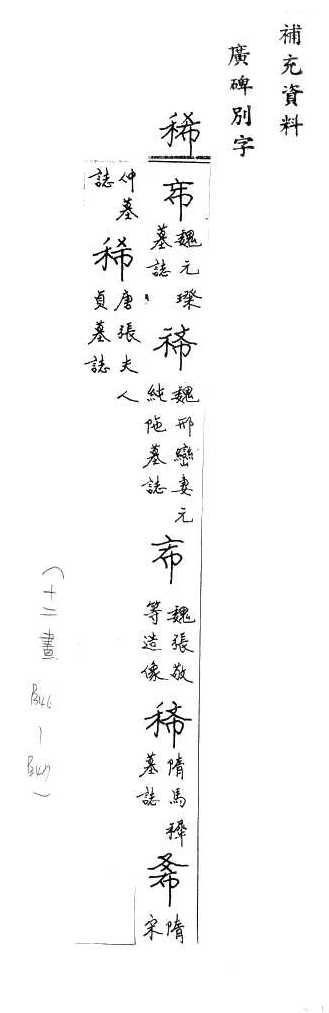 補充資料
廣碑別字
稀
魏元璨墓誌 魏邢巒妻元純陁墓誌 魏張敬等造像 稀 隋馬穉墓誌 隋宋
仲墓誌 稀 唐張夫人貞墓誌
(十二畫 P346—P347)